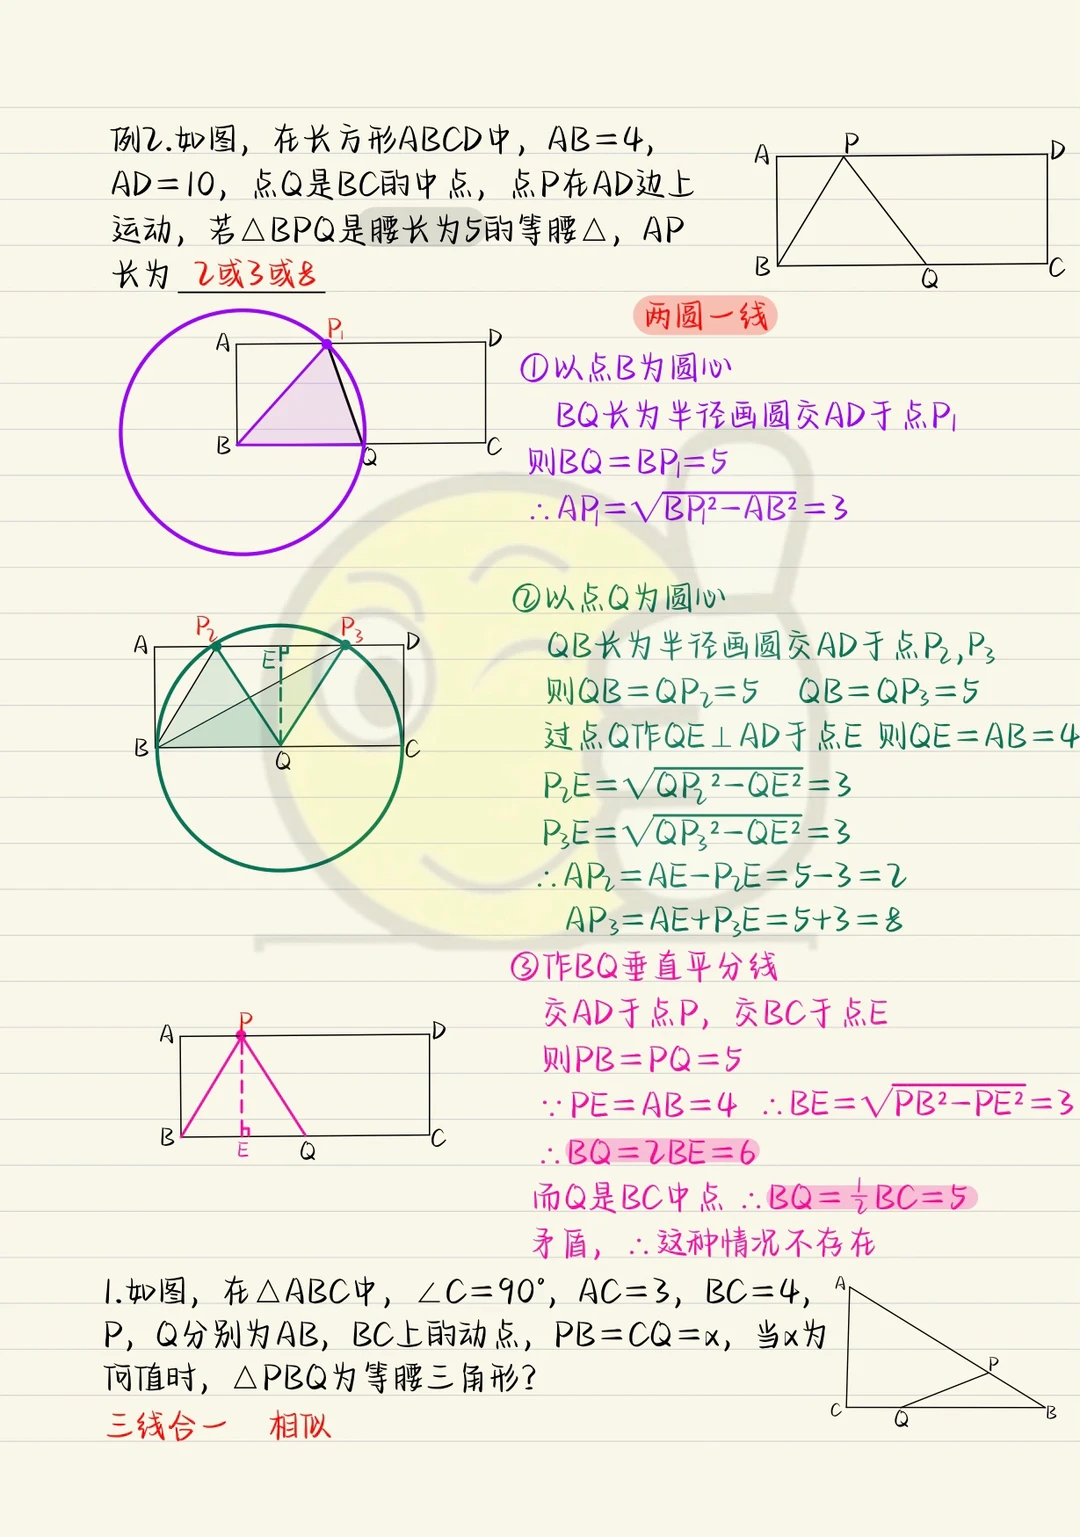 例2.如图，在长方形ABCD中，AB=4，
AD=10，点Q是BC的中点，点P在AD边上
运动，若△BPQ是腰长为5的等腰△，AP
长为 2或3或8
A P D
B Q C
两圆一线
A P₁ D
B Q C
①以点B为圆心
BQ长为半径画圆交AD于点P₁
则BQ=BP₁=5
∴AP₁=√BP₁²-AB²=3
A P₂ E P₃ D
B Q C
②以点Q为圆心
QB长为半径画圆交AD于点P₂,P₃
则QB=QP₂=5 QB=QP₃=5
过点Q作QE⊥AD于点E 则QE=AB=4
P₂E=√QP₂²-QE²=3
P₃E=√QP₃²-QE²=3
∴AP₂=AE-P₂E=5-3=2
AP₃=AE+P₃E=5+3=8
A P D
B E Q C
③作BQ垂直平分线
交AD于点P，交BC于点E
则PB=PQ=5
∵PE=AB=4 ∴BE=√PB²-PE²=3
∴BQ=2BE=6
而Q是BC中点 ∴BQ=½BC=5
矛盾，∴这种情况不存在
1.如图，在△ABC中，∠C=90°，AC=3，BC=4，
P，Q分别为AB，BC上的动点，PB=CQ=x，当x为
何值时，△PBQ为等腰三角形?
三线合一 相似
A
P
C Q B